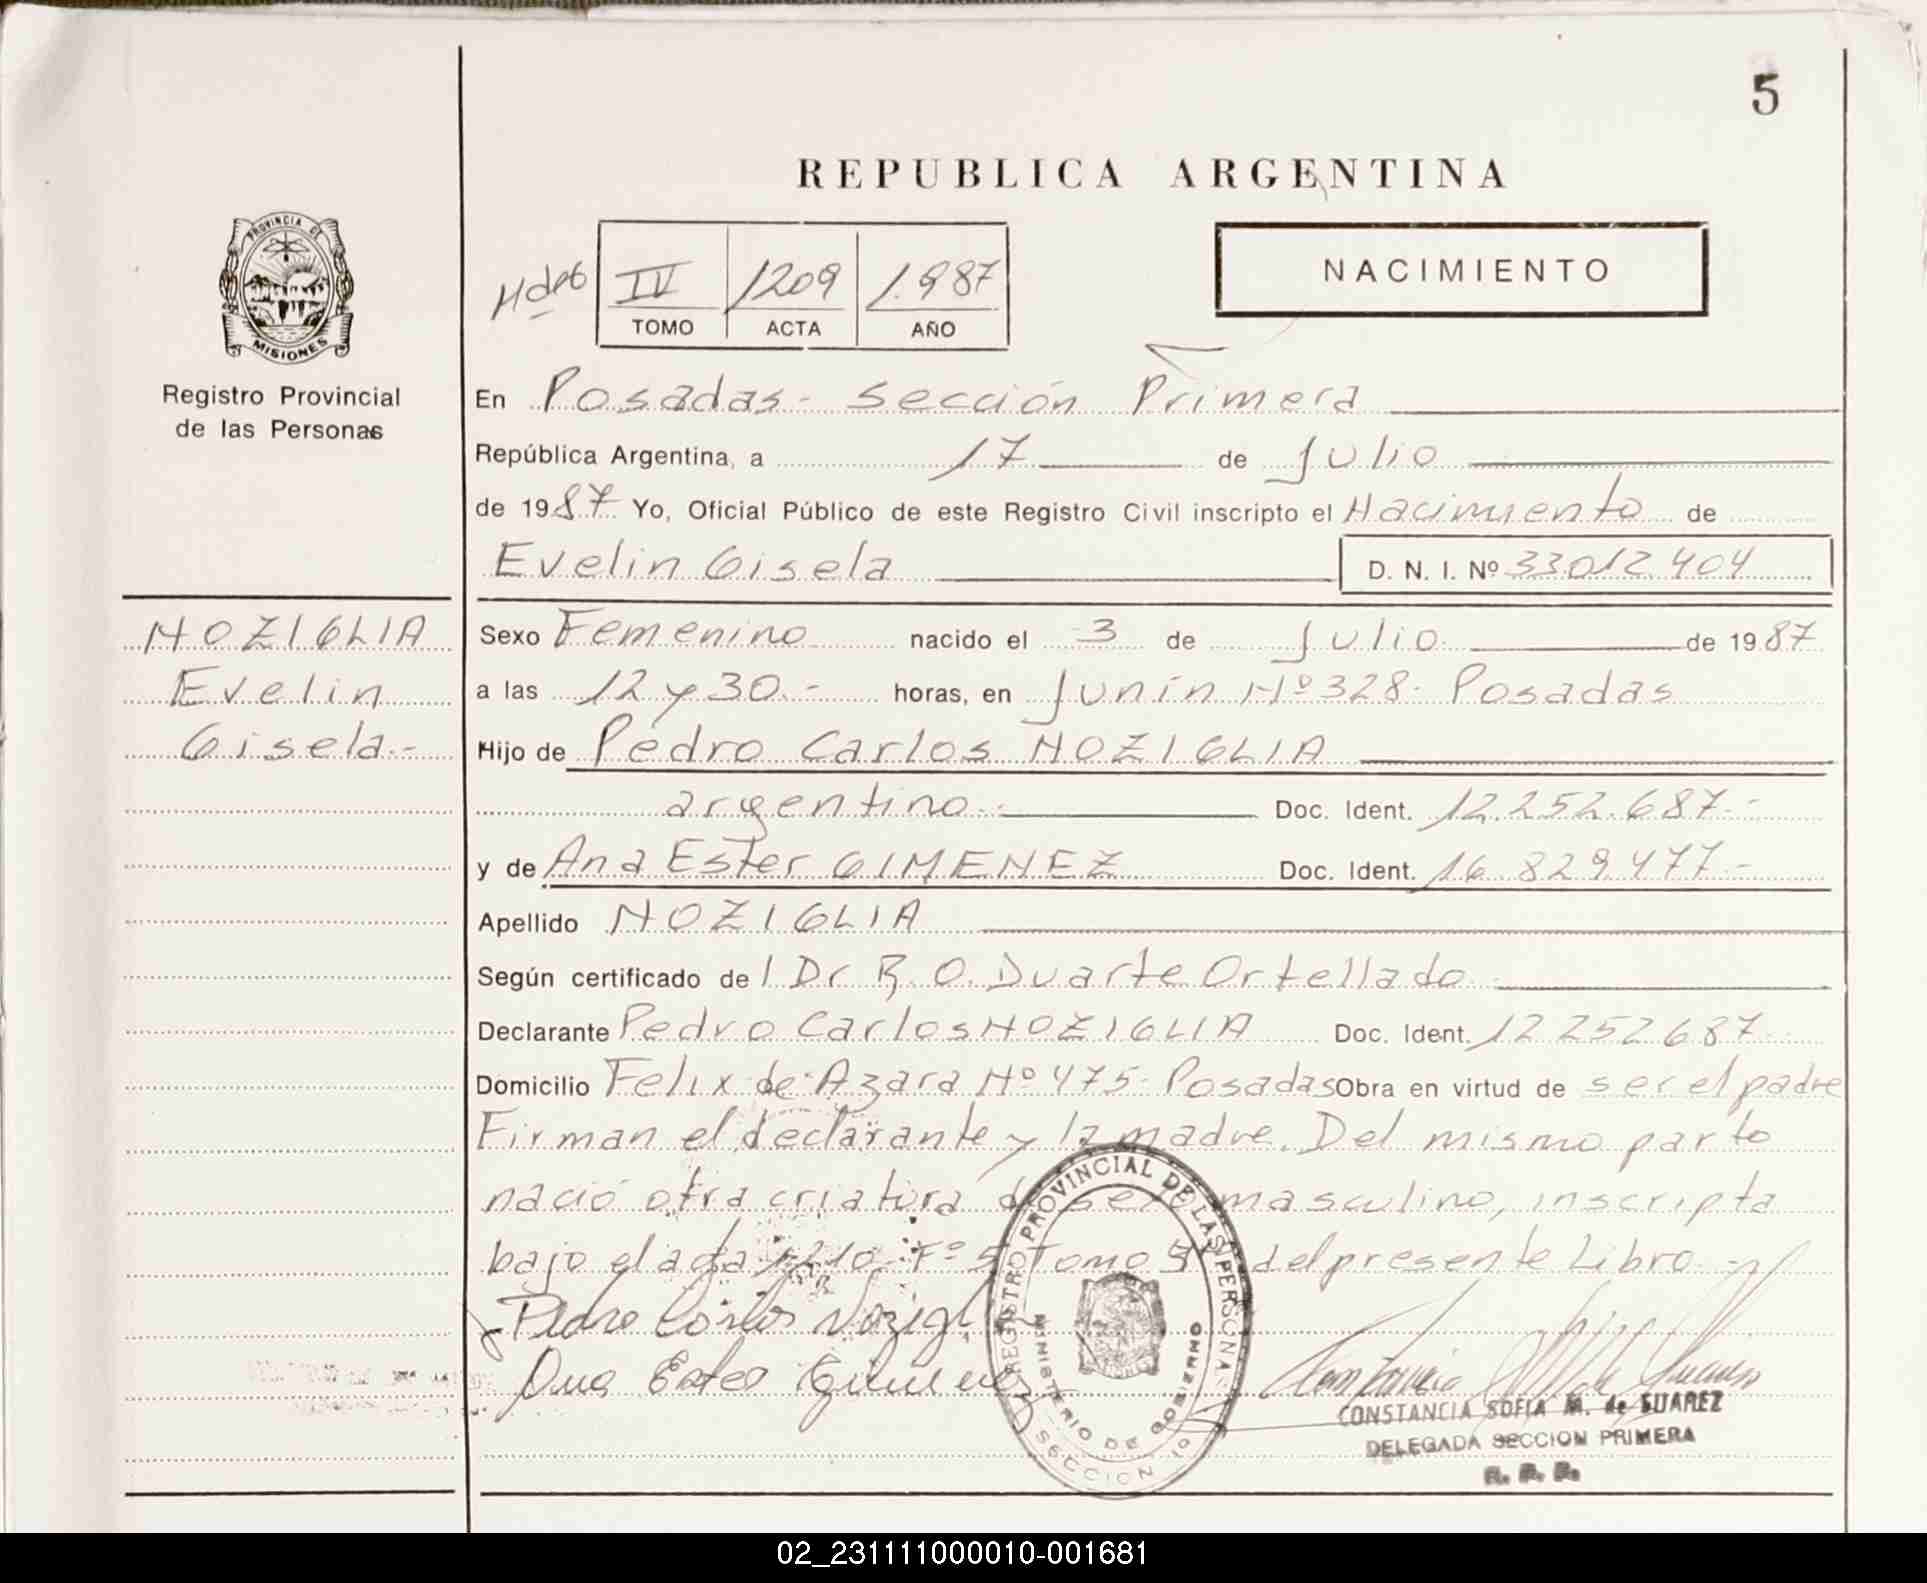 5
REPUBLICA ARGENTINA
PROVINCIA DE
MISIONES
Registro Provincial
de las Personas
IV 1209 1.987
TOMO ACTA AÑO
NACIMIENTO
En Posadas - Sección Primera
República Argentina, a 17 de Julio
de 1987 Yo, Oficial Público de este Registro Civil inscripto el Nacimiento de
Evelin Gisela D. N. I. Nº 33012404
NOZIGLIA
Evelin
Gisela.-
Sexo Femenino nacido el 3 de Julio de 1987
a las 12 y 30.- horas, en Junín Nº 328- Posadas
Hijo de Pedro Carlos NOZIGLIA
argentino.- Doc. Ident. 12.252.687.-
y de Ana Ester GIMENEZ Doc. Ident. 16.829.477.-
Apellido NOZIGLIA
Según certificado del Dr R. O. Duarte Ortellado
Declarante Pedro Carlos NOZIGLIA Doc. Ident. 12252687-
Domicilio Felix de Azara Nº 475- Posadas Obra en virtud de ser el padre
Firman el declarante y la madre. Del mismo parto
nació otra criatura de sexo masculino, inscripta
bajo el acta 1210 Fº 5 Tomo del presente Libro.-
Pedro Carlos Nozigl
Ana Ester Gimenez
REGISTRO PROVINCIAL DE LAS PERSONAS
MINISTERIO DE GOBIERNO
SECCION 1º
CONSTANCIA SOFIA M. de SUAREZ
DELEGADA SECCION PRIMERA
R. P. P.
02_231111000010-001681